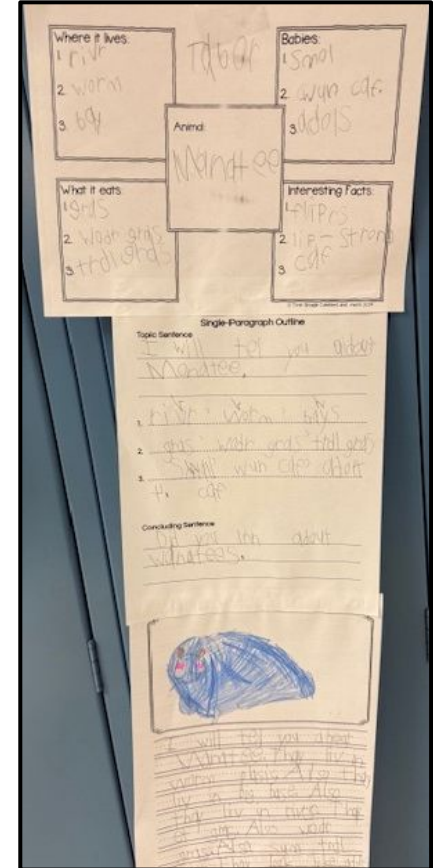 Where it lives:
1 rivr
2 worm
3 bay
Babies:
1 Smol
2 wun caf.
3 adols
Animal:
Manatee
What it eats:
1 gras
2 wodr gras
3 trdl gras
Interesting Facts:
1 fliprs
2 lip - strong
3 caf
Single-Paragraph Outline
Topic Sentence
I will tel you about
Manatee.
1. rivr worm bays
2. gras wodr gras trdl gras
3. wun caf
caf
Concluding Sentence
Did you lrn about
manatees.
I will tel you about
Manatee. Thay liv in
worm plasis. Also thay
liv in bays. Also
thay liv in rivrs. Thay
et gras. Also wodr
gras. Also trdl